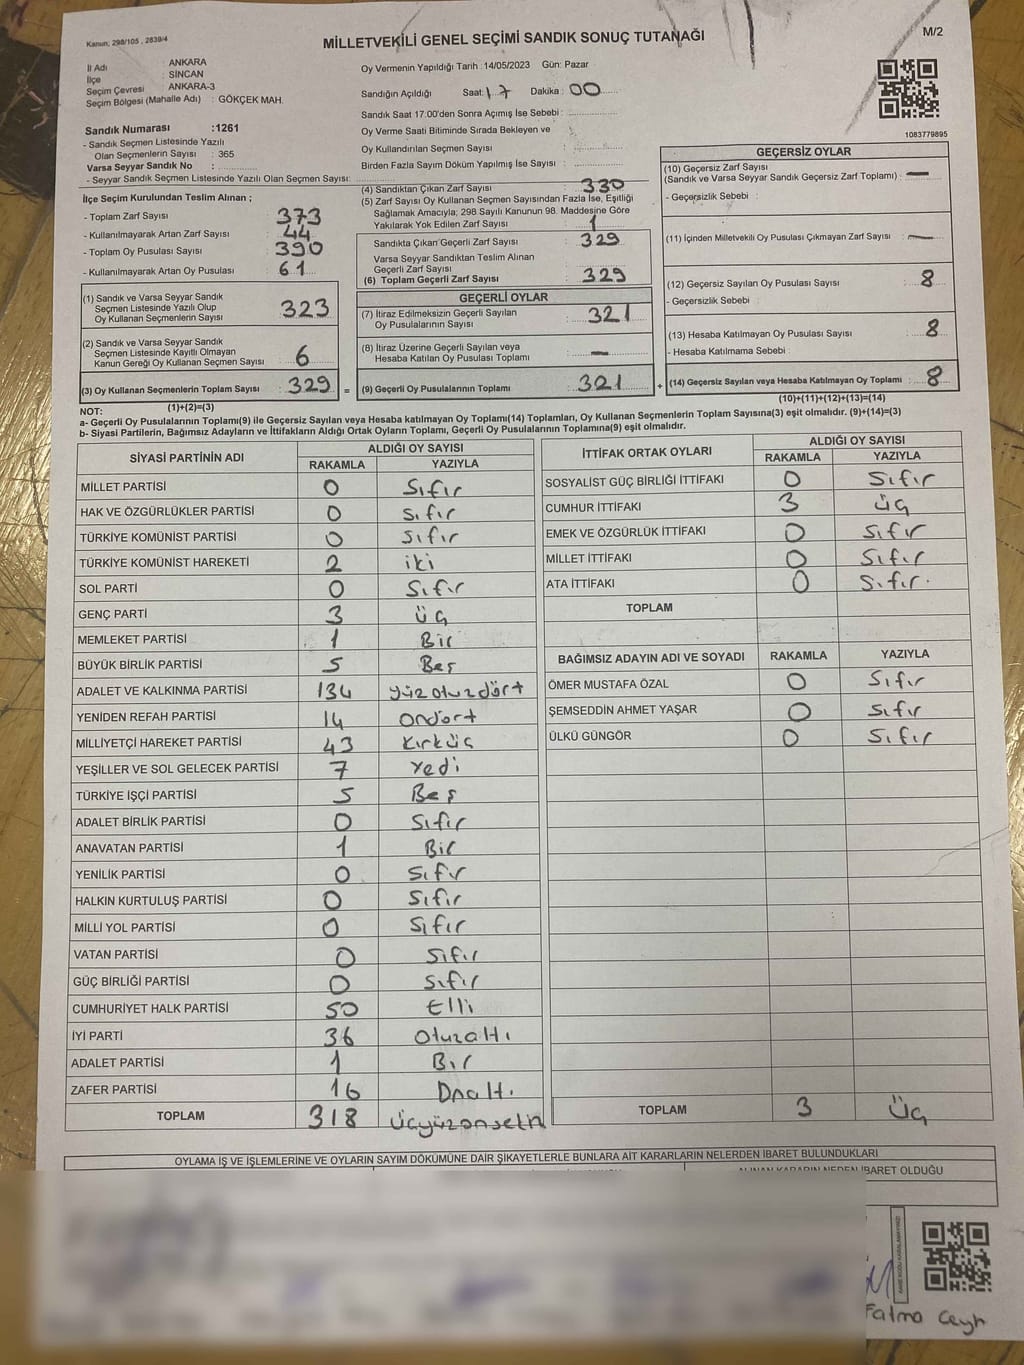 Kanun; 298/105 , 2839/4
MİLLETVEKİLİ GENEL SEÇİMİ SANDIK SONUÇ TUTANAĞI
M/2
İl Adı : ANKARA
İlçe : SİNCAN
Seçim Çevresi : ANKARA-3
Seçim Bölgesi (Mahalle Adı) : GÖKÇEK MAH.
Sandık Numarası :1261
- Sandık Seçmen Listesinde Yazılı
Olan Seçmenlerin Sayısı : 365
Varsa Seyyar Sandık No :
- Seyyar Sandık Seçmen Listesinde Yazılı Olan Seçmen Sayısı:
Oy Vermenin Yapıldığı Tarih :14/05/2023 Gün: Pazar
Sandığın Açıldığı Saat: 17 Dakika : 00
Sandık Saat 17:00'den Sonra Açımış İse Sebebi :
Oy Verme Saati Bitiminde Sırada Bekleyen ve
Oy Kullandırılan Seçmen Sayısı :
Birden Fazla Sayım Döküm Yapılmış İse Sayısı :
1083779895
İlçe Seçim Kurulundan Teslim Alınan ;
- Toplam Zarf Sayısı : 373
- Kullanılmayarak Artan Zarf Sayısı : 44
- Toplam Oy Pusulası Sayısı : 390
- Kullanılmayarak Artan Oy Pusulası : 61
(1) Sandık ve Varsa Seyyar Sandık
Seçmen Listesinde Yazılı Olup
Oy Kullanan Seçmenlerin Sayısı : 323
(2) Sandık ve Varsa Seyyar Sandık
Seçmen Listesinde Kayıtlı Olmayan
Kanun Gereği Oy Kullanan Seçmen Sayısı : 6
(3) Oy Kullanan Seçmenlerin Toplam Sayısı : 329 =
(1)+(2)=(3)
(4) Sandıktan Çıkan Zarf Sayısı : 330
(5) Zarf Sayısı Oy Kullanan Seçmen Sayısından Fazla İse, Eşitliği
Sağlamak Amacıyla; 298 Sayılı Kanunun 98. Maddesine Göre
Yakılarak Yok Edilen Zarf Sayısı : 1
Sandıkta Çıkan Geçerli Zarf Sayısı : 329
Varsa Seyyar Sandıktan Teslim Alınan
Geçerli Zarf Sayısı :
(6) Toplam Geçerli Zarf Sayısı : 329
GEÇERLİ OYLAR
(7) İtiraz Edilmeksizin Geçerli Sayılan
Oy Pusulalarının Sayısı : 321
(8) İtiraz Üzerine Geçerli Sayılan veya
Hesaba Katılan Oy Pusulası Toplamı : —
(9) Geçerli Oy Pusulalarının Toplamı : 321 +
GEÇERSİZ OYLAR
(10) Geçersiz Zarf Sayısı
(Sandık ve Varsa Seyyar Sandık Geçersiz Zarf Toplamı) : —
- Geçersizlik Sebebi :
(11) İçinden Milletvekili Oy Pusulası Çıkmayan Zarf Sayısı : —
(12) Geçersiz Sayılan Oy Pusulası Sayısı : 8
- Geçersizlik Sebebi :
(13) Hesaba Katılmayan Oy Pusulası Sayısı : 8
- Hesaba Katılmama Sebebi :
(14) Geçersiz Sayılan veya Hesaba Katılmayan Oy Toplamı : 8
(10)+(11)+(12)+(13)=(14)
NOT:
a- Geçerli Oy Pusulalarının Toplamı(9) ile Geçersiz Sayılan veya Hesaba katılmayan Oy Toplamı(14) Toplamları, Oy Kullanan Seçmenlerin Toplam Sayısına(3) eşit olmalıdır. (9)+(14)=(3)
b- Siyasi Partilerin, Bağımsız Adayların ve İttifakların Aldığı Ortak Oyların Toplamı, Geçerli Oy Pusulalarının Toplamına(9) eşit olmalıdır.
SİYASİ PARTİNİN ADI ALDIĞI OY SAYISI
RAKAMLA YAZIYLA
MİLLET PARTİSİ 0 Sıfır
HAK VE ÖZGÜRLÜKLER PARTİSİ 0 Sıfır
TÜRKİYE KOMÜNİST PARTİSİ 0 Sıfır
TÜRKİYE KOMÜNİST HAREKETİ 2 iki
SOL PARTİ 0 Sıfır
GENÇ PARTİ 3 üç
MEMLEKET PARTİSİ 1 Bir
BÜYÜK BİRLİK PARTİSİ 5 Beş
ADALET VE KALKINMA PARTİSİ 134 yüzotuzdört
YENİDEN REFAH PARTİSİ 14 ondört
MİLLİYETÇİ HAREKET PARTİSİ 43 kırküç
YEŞİLLER VE SOL GELECEK PARTİSİ 7 Yedi
TÜRKİYE İŞÇİ PARTİSİ 5 Beş
ADALET BİRLİK PARTİSİ 0 Sıfır
ANAVATAN PARTİSİ 1 Bir
YENİLİK PARTİSİ 0 Sıfır
HALKIN KURTULUŞ PARTİSİ 0 Sıfır
MİLLİ YOL PARTİSİ 0 Sıfır
VATAN PARTİSİ 0 Sıfır
GÜÇ BİRLİĞİ PARTİSİ 0 Sıfır
CUMHURİYET HALK PARTİSİ 50 Elli
İYİ PARTİ 36 Otuzaltı
ADALET PARTİSİ 1 Bir
ZAFER PARTİSİ 16 Onaltı
TOPLAM 318 üçyüzonsekiz
İTTİFAK ORTAK OYLARI ALDIĞI OY SAYISI
RAKAMLA YAZIYLA
SOSYALİST GÜÇ BİRLİĞİ İTTİFAKI 0 Sıfır
CUMHUR İTTİFAKI 3 üç
EMEK VE ÖZGÜRLÜK İTTİFAKI 0 Sıfır
MİLLET İTTİFAKI 0 Sıfır
ATA İTTİFAKI 0 Sıfır.
TOPLAM
BAĞIMSIZ ADAYIN ADI VE SOYADI RAKAMLA YAZIYLA
ÖMER MUSTAFA ÖZAL 0 Sıfır
ŞEMSEDDİN AHMET YAŞAR 0 Sıfır
ÜLKÜ GÜNGÖR 0 Sıfır
TOPLAM 3 üç
OYLAMA İŞ VE İŞLEMLERİNE VE OYLARIN SAYIM DÖKÜMÜNE DAİR ŞİKAYETLERLE BUNLARA AİT KARARLARIN NELERDEN İBARET BULUNDUKLARI
ALINAN KARARIN NEDEN İBARET OLDUĞU
Fatma Ceyh